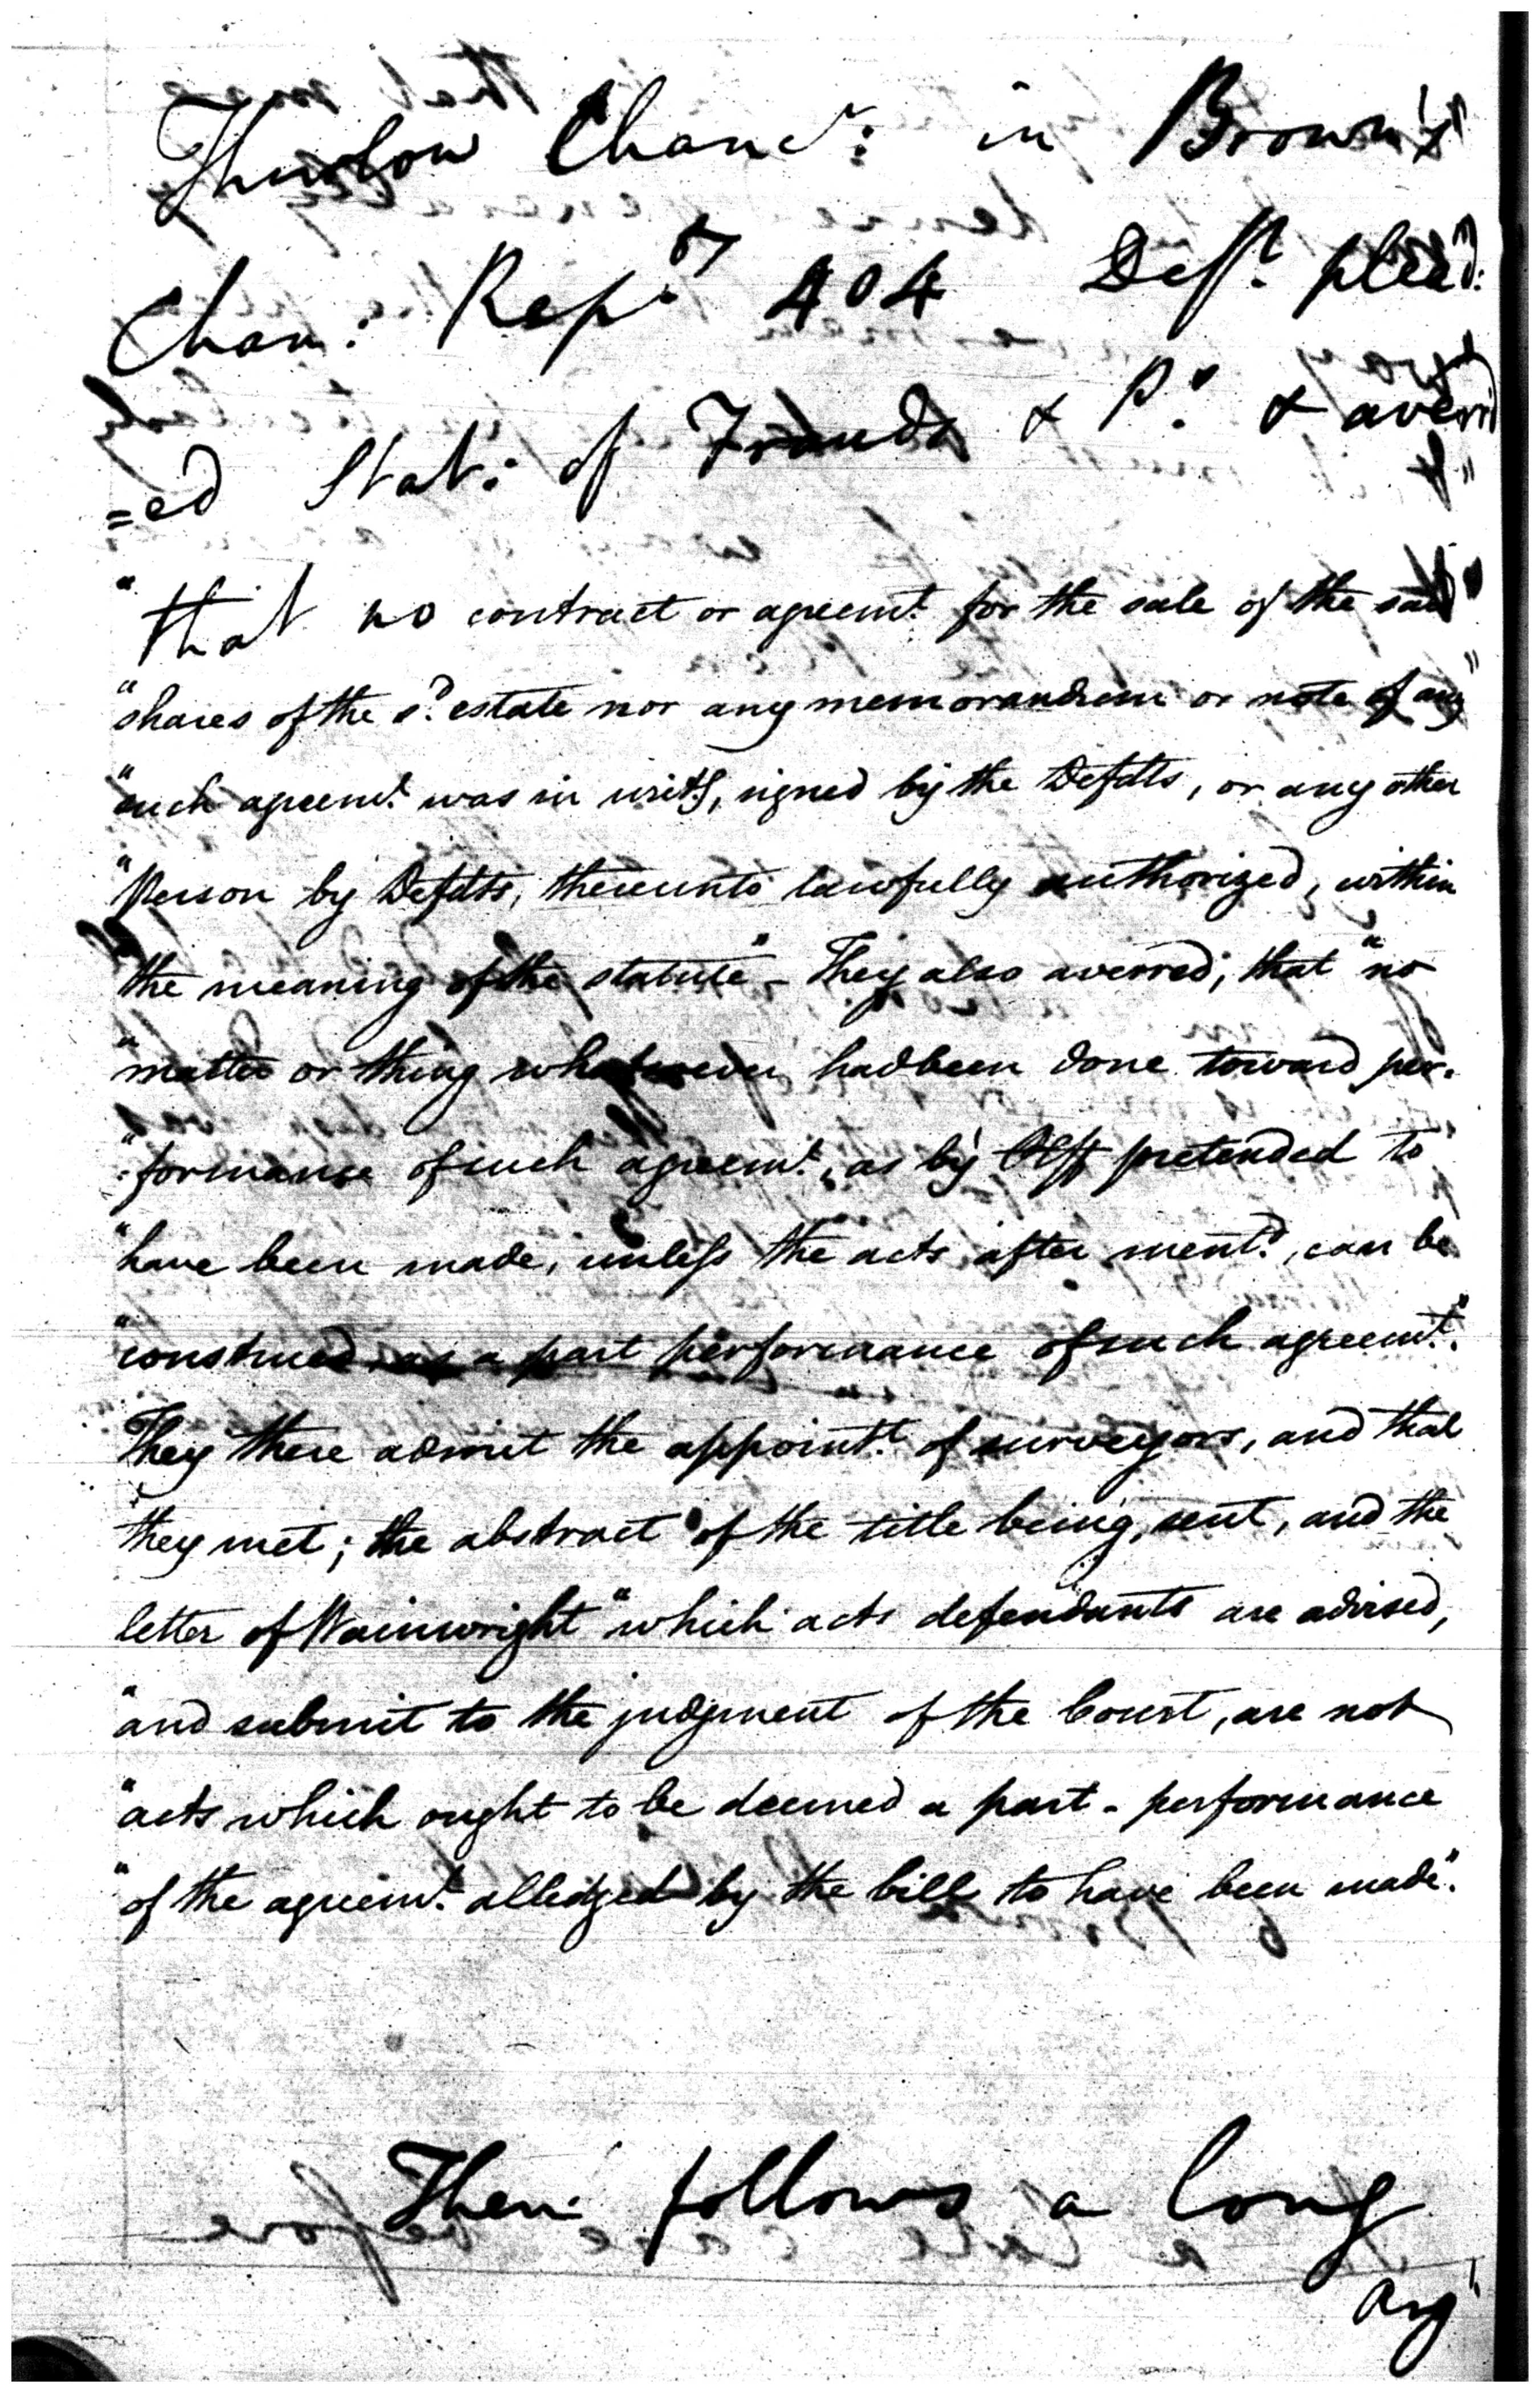 Thurlow Chanc^r: in Brown's
Chan: Rep^ts 404 Deft. plead:
=ed Stat: of Frauds & P: & averr'd
"that no contract or agreemt. for the sale of the said"
"shares of the sd. estate nor any memorandum or note of any"
"such agreemt. was in writg, signed by the Defdts, or any other
"Person by Defdts, thereunto lawfully authorized, within
the meaning of the statute" - They also averred; that "no
"matter or thing whatsoever had been done toward per-
":formance of such agreemt., as by Plff pretended to
"have been made, unless the acts after mentd., can be
"construed as a part performance of such agreemt."
They there admit the appointt. of surveyors, and that
they met; the abstract of the title being sent, and the
letter of Wainwright "which acts defendants are advised,
"and submit to the judgment of the Court, are not
"acts which ought to be deemed a part-performance
"of the agreemt. alledged by the bill to have been made".
Then follows a long
arg